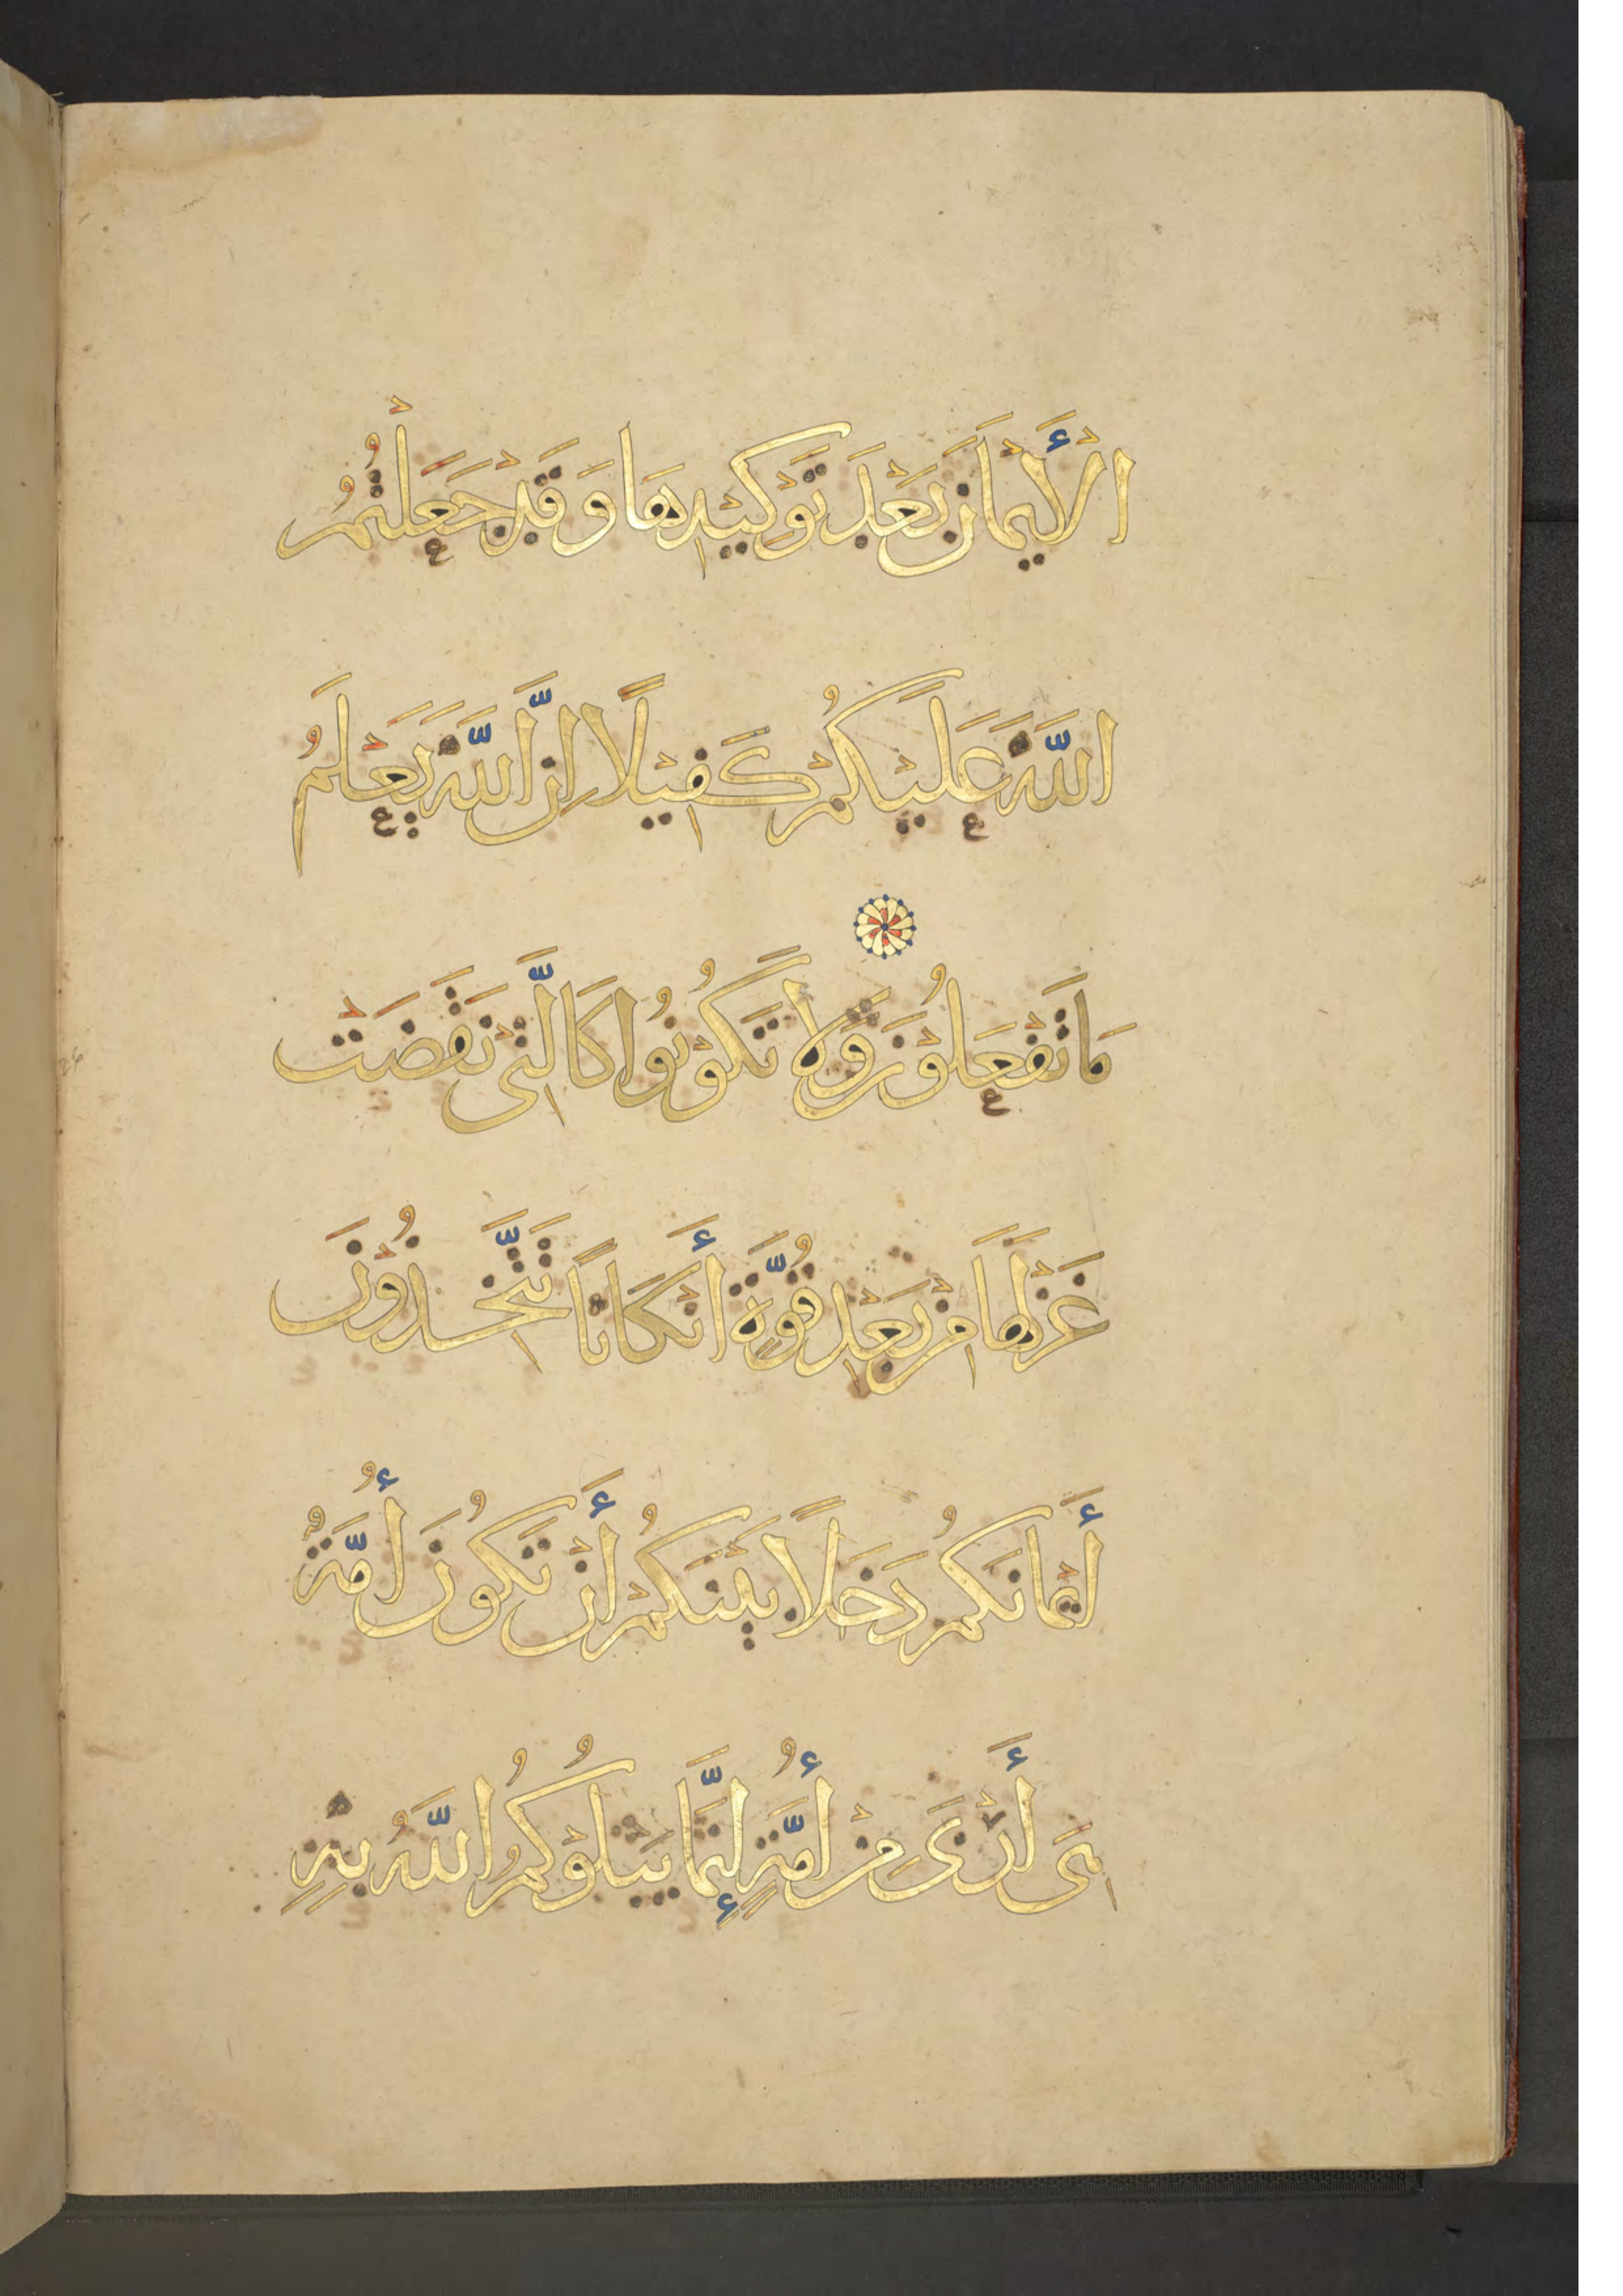 الْأَيْمَانَ بَعْدَ تَوْكِيْدِهَا وَقَدْ جَعَلْتُمُ
اللّٰهَ عَلَيْكُمْ كَفِيْلًا اِنَّ اللّٰهَ يَعْلَمُ
مَا تَفْعَلُوْنَ وَلَا تَكُوْنُوا كَالَّتِىْ نَقَضَتْ
غَزْلَهَا مِنْ بَعْدِ قُوَّةٍ أَنْكَاثًا تَتَّخِذُوْنَ
أَيْمَانَكُمْ دَخَلًا بَيْنَكُمْ أَنْ تَكُوْنَ أُمَّةٌ
هِىَ أَرْبَىٰ مِنْ أُمَّةٍ إِنَّمَا يَبْلُوْكُمُ اللّٰهُ بِهِ